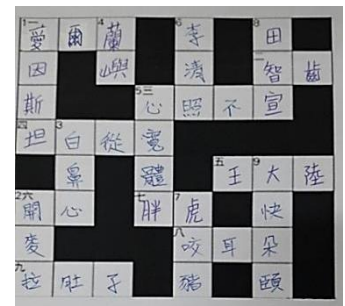 1一愛爾4蘭 6李 8田
因嶼清二智齒
斯5三心照不宣
四坦3白從寬
鼻體五王9大陸
2六開心七胖7虎快
麥八咬耳朵
九拉肚子豬頤